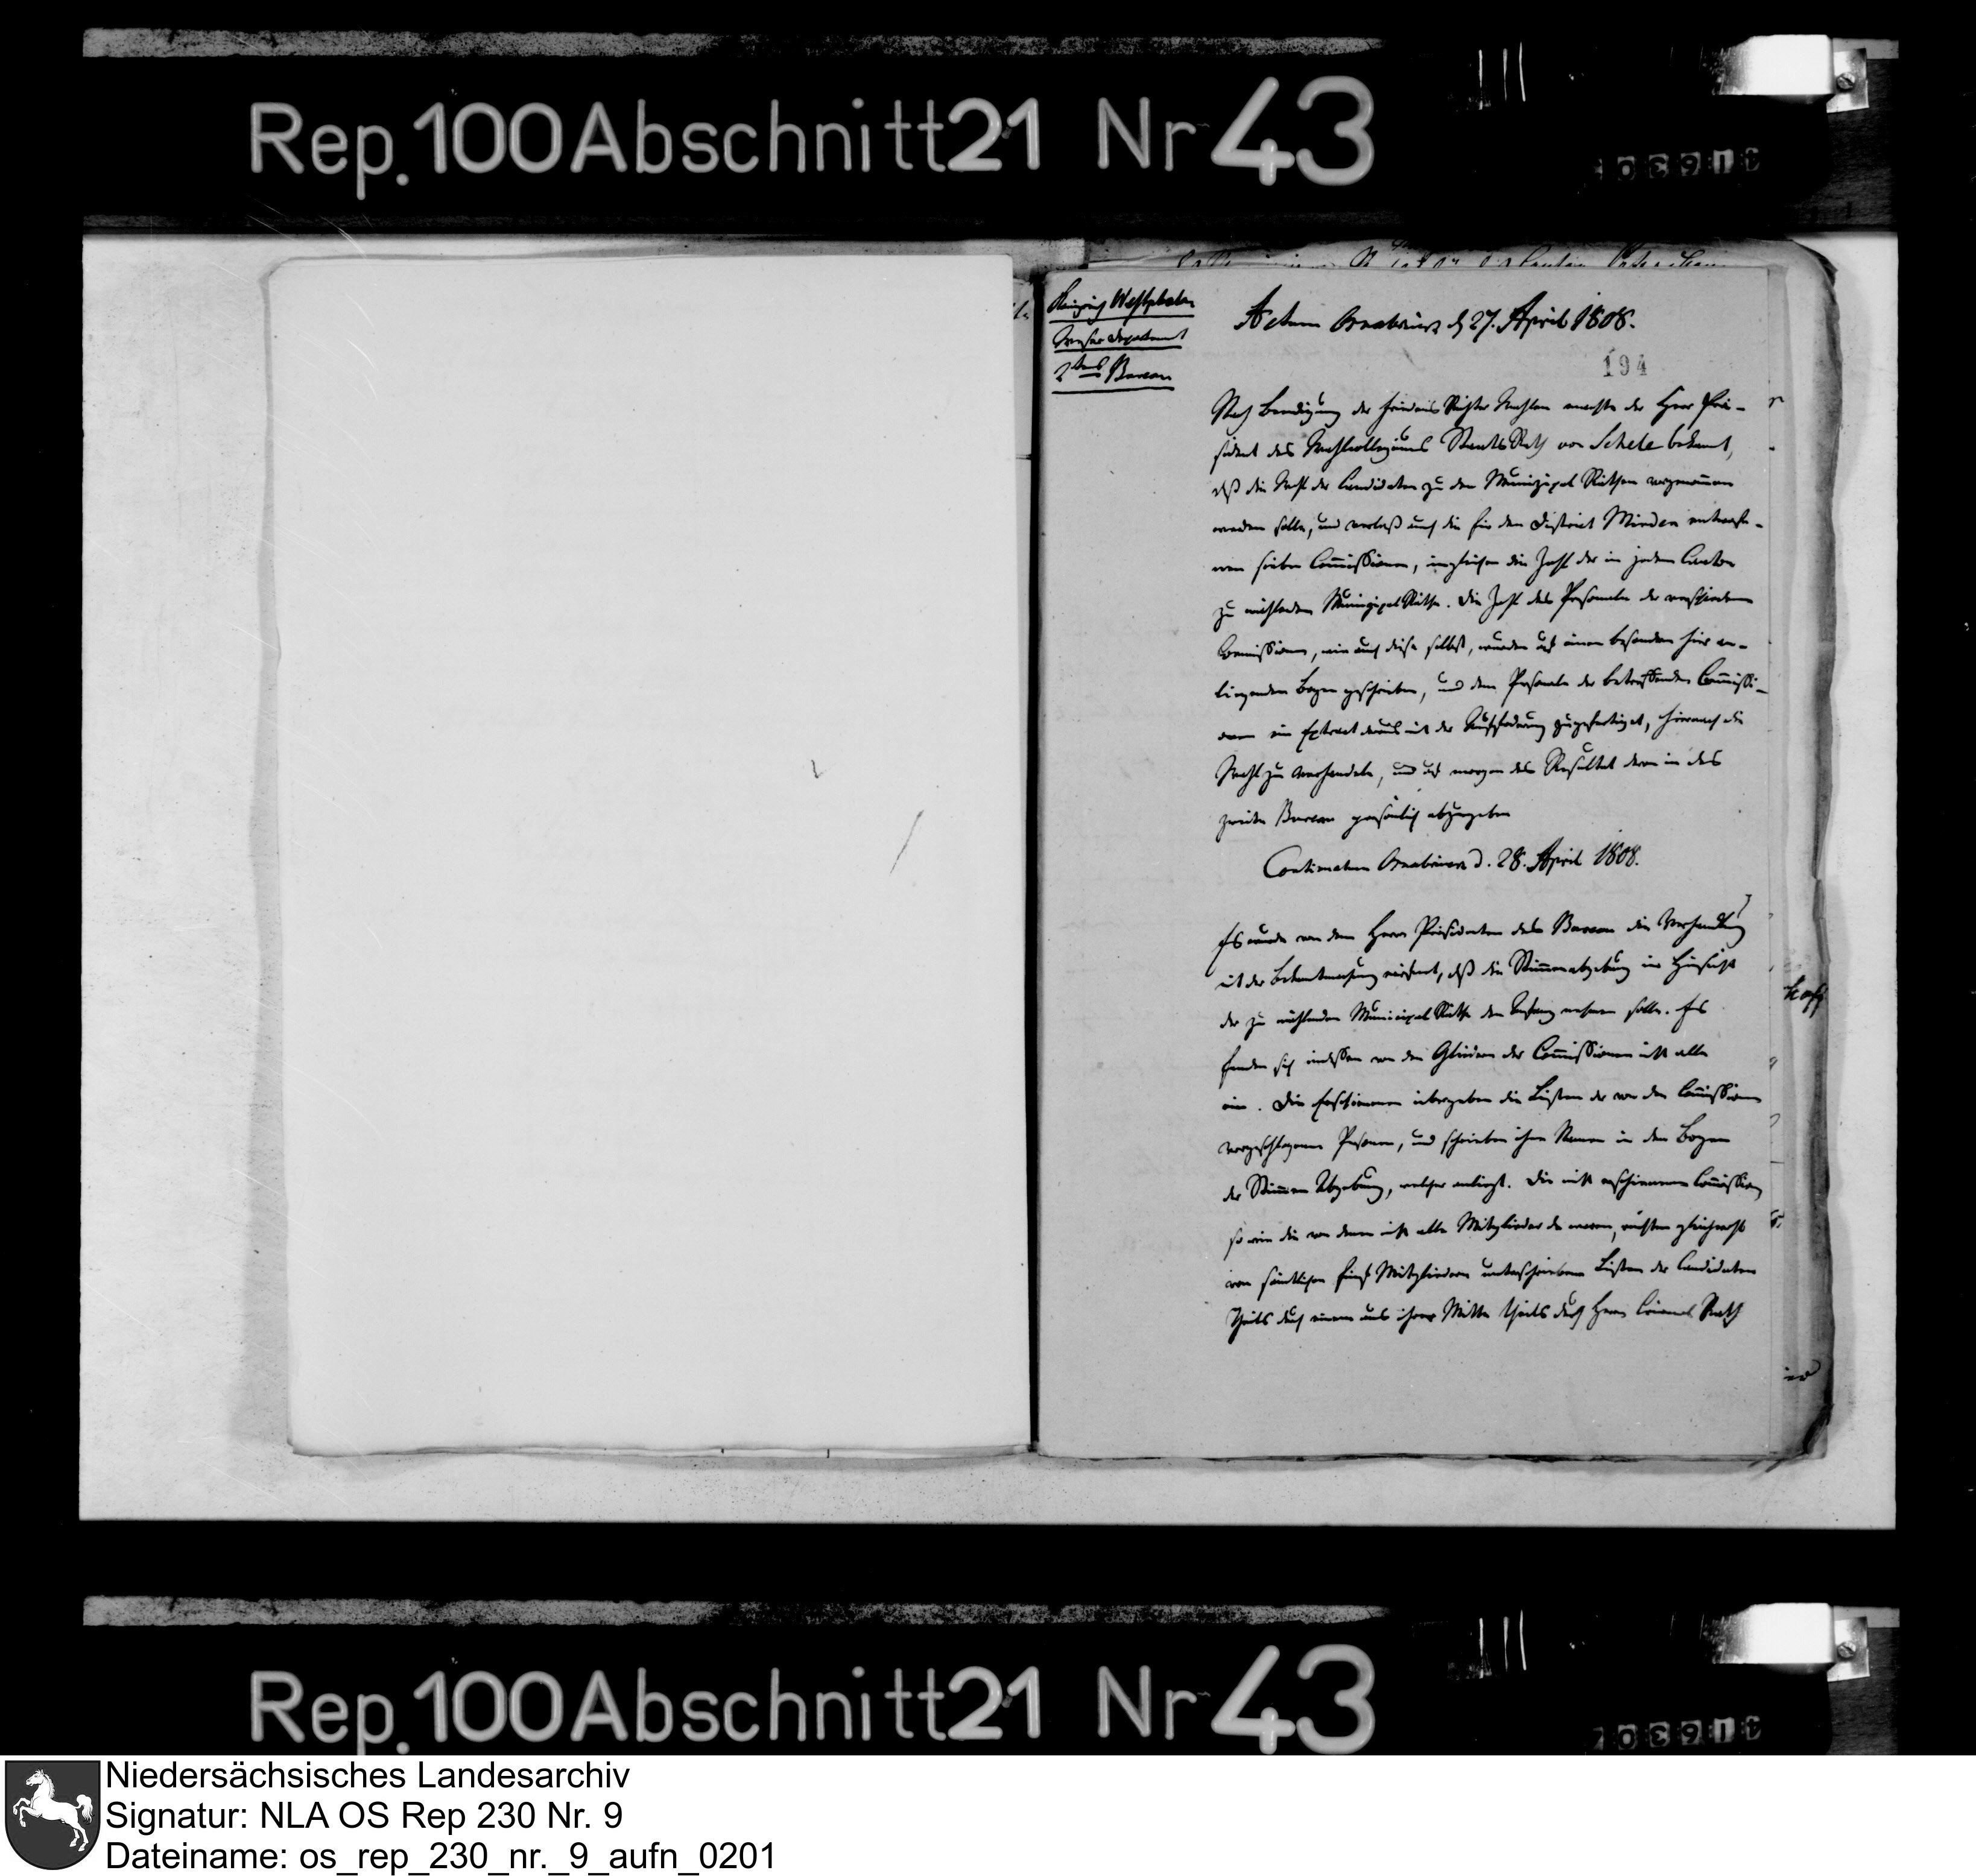 Rep. 100 Abschnitt 21 Nr 43
Königreich Westphalen
Weser Departement
2tes Bureau
Actum Osnabrück d 27. April 1808.
194
Nach Beendigung der Friedens Richter Wahlen machte der Herr Prä-
sident des Wahlcollegiums StaatsRath von Schele bekannt,
daß die Wahl der Candidaten zu den Munizipal Räthen vorgenommen
werden solle, und verlaß auch die für den District Minden entworfe-
nen sieben Commissionen, ingleichen die Zahl der in jedem Canton
zu wählenden MunizipalRäthe. Die Zahl des Personals der verschiedenen
Commissionen, wie auch diese selbst, wurden auf einen besondern hier an-
liegenden Bogen geschrieben, und dem Personale der betreffenden Commissi-
onen ein Extract daraus mit der Aufforderung zugefertiget, hiernach die
Wahl zu verhandeln, und auf morgen das Resultat davon in das
zweite Bureau persönlich abzugeben
Continuatum Osnabrück d. 28. April 1808.
Es wurde von dem Herrn Präsidenten des Bureau die Verhandlung
mit der Bekanntmachung eröfnet, daß die Stimmenabgebung in Hinsicht
der zu wählenden Municipal Räthe den Anfang nehmen solle. Es
fanden sich indessen von den Gliedern der Commissionen nicht alle
ein. Die Erschienenen übergeben die Listen der von den Commissionen
vorgeschlagenen Personen, und schrieben ihre Namen in den Bogen
der Stimmen Abgebung, welcher anliegt. Die nicht erschienenen Commission
so wie die von denen nicht alle Mitglieder da waren, reichten gleichwohl
von sämtlichen fünf Mitgliedern unterschriebene Listen der Candidaten
theils durch einen aus ihrer Mitte theils durch Herrn Criminal Rath
Rep. 100 Abschnitt 21 Nr 43
Niedersächsisches Landesarchiv
Signatur: NLA OS Rep 230 Nr. 9
Dateiname: os_rep_230_nr._9_aufn_0201